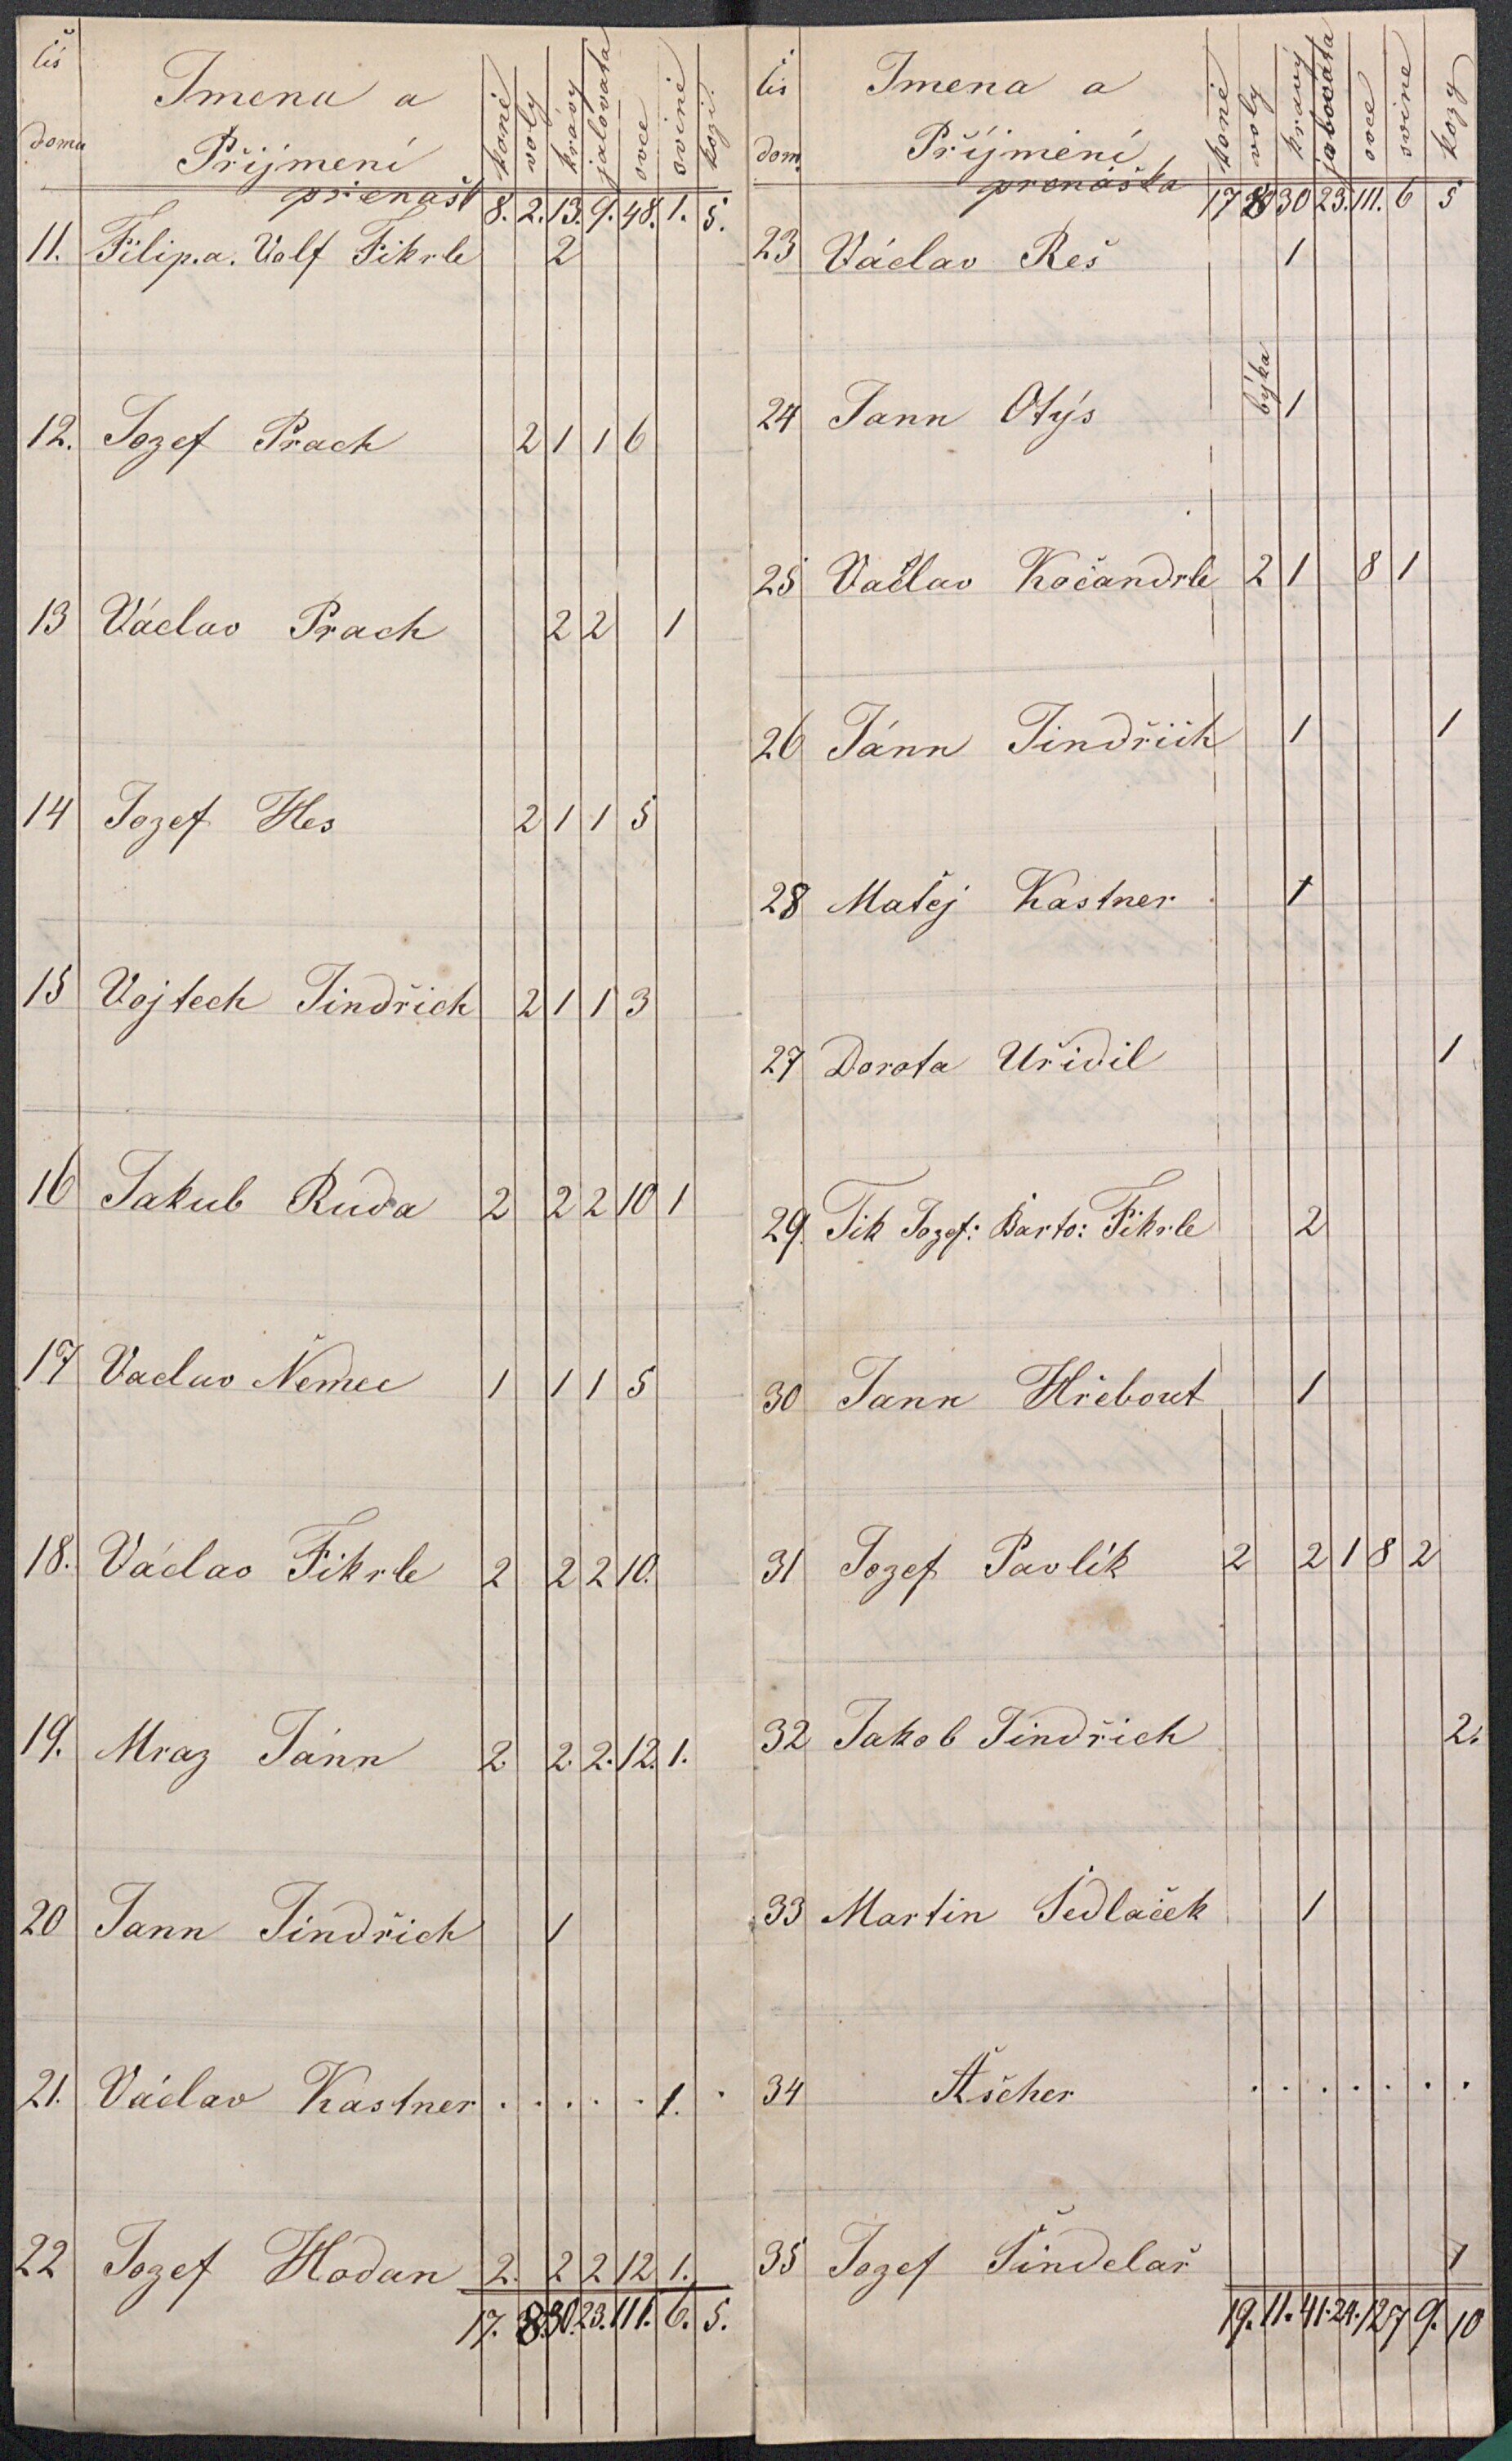 čís domu Jmena a Přijmení koně voly krávy jalovata ovce svině kozi
přenašk 8. 2. 13. 9. 48. 1. 5.
11. Filip. a. Volf Fikrle 2
12. Jozef Prach 2 1 1 6
13 Václav Prach 2 2 1
14 Jozef Hes 2 1 1 5
15 Vojtech Jindřich 2 1 1 3
16 Jakub Ruda 2 2 2 10 1
17 Vaclav Němec 1 1 1 5
18. Václav Fikrle 2 2 2 10.
19. Mraz Jánn 2. 2. 2. 12. 1.
20 Jann Jindřich 1
21. Václav Kastner . . . . . 1. .
22 Jozef Hodan 2. 2 2 12 1.
17. 8. 30. 23. 111. 6. 5.
čís dom. Jmena a Přijmení koně voly kravy jabovata ovce svine kozy
prenáška 17 8 30 23. 111. 6 5
23 Václav Reš 1
24 Jann Otýs býka 1
25 Václav Kočandrle 2 1 8 1
26 Jánn Jindřich 1 1
28 Matěj Kastner 1
27 Dorota Uřidil 1
29. Tik Jozef: Barto: Fikrle 2
30 Jann Hřebout 1
31 Jozef Pavlík 2 2 1 8 2
32 Jakob Jindřich 2.
33 Martin Sedlaček 1
34 Ašcher . . . . . . .
35 Jozef Šindelař 1
19. 11. 41. 24. 127 9. 10